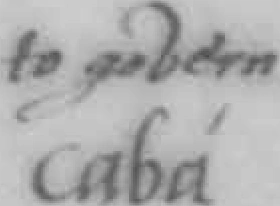 to gobern
caba